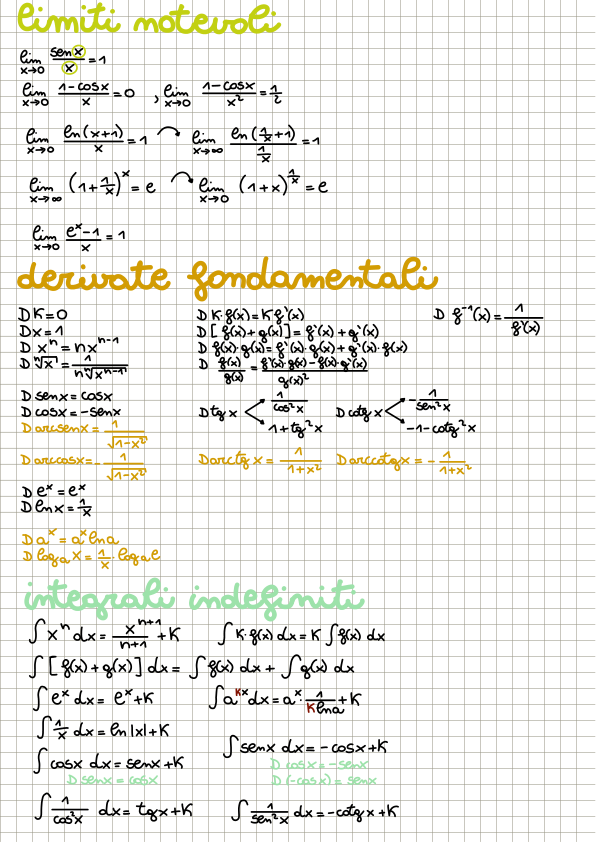 limiti notevoli
lim x→0 senx/x = 1
lim x→0 1-cosx/x = 0 , lim x→0 1-cosx/x² = 1/2
lim x→0 ln(x+1)/x = 1 lim x→∞ ln(1/x+1)/(1/x) = 1
lim x→∞ (1+1/x)^x = e lim x→0 (1+x)^(1/x) = e
lim x→0 e^x-1/x = 1
derivate fondamentali
D K = 0 D K·f(x) = K f'(x) D f⁻¹(x) = 1/f'(x)
D x = 1 D [f(x)+g(x)] = f'(x)+g'(x)
D x^n = nx^(n-1) D f(x)·g(x) = f'(x)·g(x)+g'(x)·f(x)
D ⁿ√x = 1/(n ⁿ√x^(n-1)) D f(x)/g(x) = f'(x)·g(x)-f(x)·g'(x)/g(x)²
D senx = cosx D tgx 1/cos²x D cotgx -1/sen²x
D cosx = -senx 1+tg²x -1-cotg²x
D arcsenx = 1/√1-x²
D arccosx = -1/√1-x² D arctg x = 1/1+x² D arccotgx = -1/1+x²
D e^x = e^x
D lnx = 1/x
D a^x = a^x lna
D log_a x = 1/x · log_a e
integrali indefiniti
∫ x^n dx = x^(n+1)/n+1 + K ∫ K·f(x) dx = K ∫ f(x) dx
∫ [f(x)+g(x)] dx = ∫ f(x) dx + ∫ g(x) dx
∫ e^x dx = e^x+K ∫ a^(Kx) dx = a^x · 1/Klna + K
∫ 1/x dx = ln|x|+K
∫ cosx dx = senx+K ∫ senx dx = -cosx+K
D senx = cosx D cosx = -senx
D(-cosx) = senx
∫ 1/cos²x dx = tgx+K ∫ 1/sen²x dx = -cotgx+K